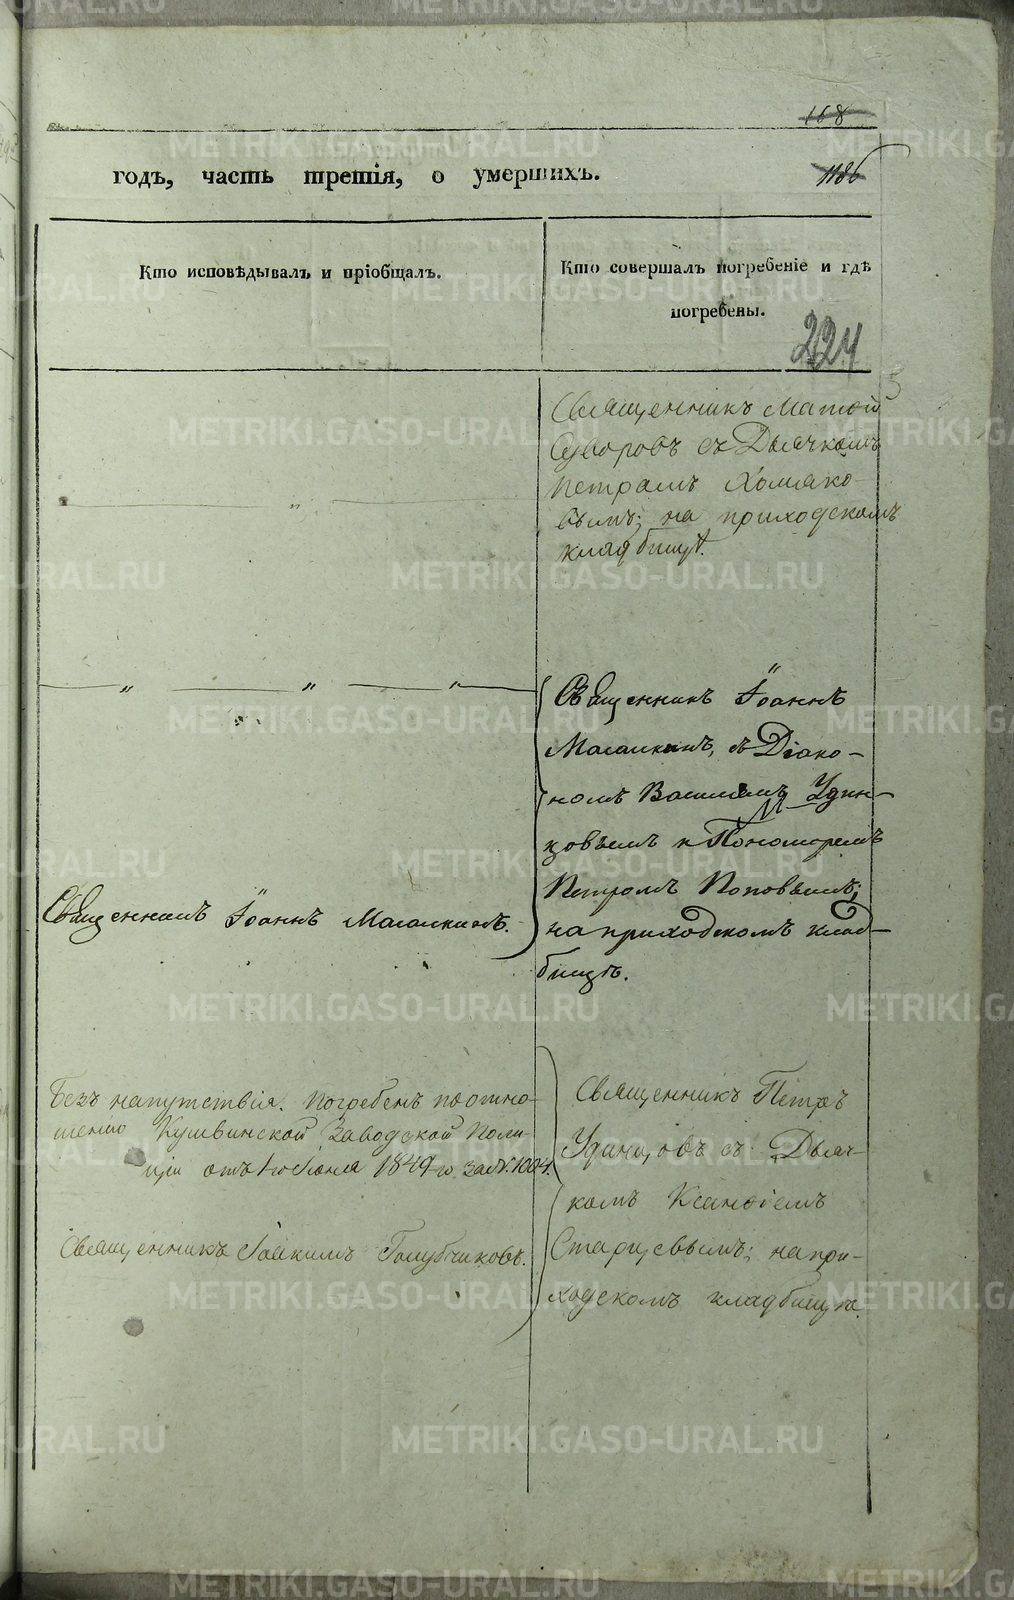 168
годъ, часть третія, о умершихъ.
1186
Кто исповѣдывалъ и пріобщалъ.
Кто совершалъ погребеніе и гдѣ
погребены.
224
Священникъ Матѳій
Суворовъ съ Дьячкомъ
Петромъ Хомяко-
вымъ; на приходскомъ
кладбищѣ.
Священникъ Іоаннъ
съ Діако-
номъ Василіемъ Удин-
цовымъ и Пономаремъ
Петромъ Поповымъ;
на приходскомъ клад-
бищѣ.
Священникъ Іоаннъ
Безъ напутствія. Погребенъ по отно-
шенію Кушвинской Заводской Поли-
ціи отъ 1го Іюля 1849го за №. 1004.
Священникъ Іоакимъ Голубчиковъ.
Священникъ Петръ
Удинцовъ съ Дьяч-
комъ Ксанѳіемъ
Старцевымъ; на при-
ходскомъ кладбищѣ.
METRIKI.GASO-URAL.RU